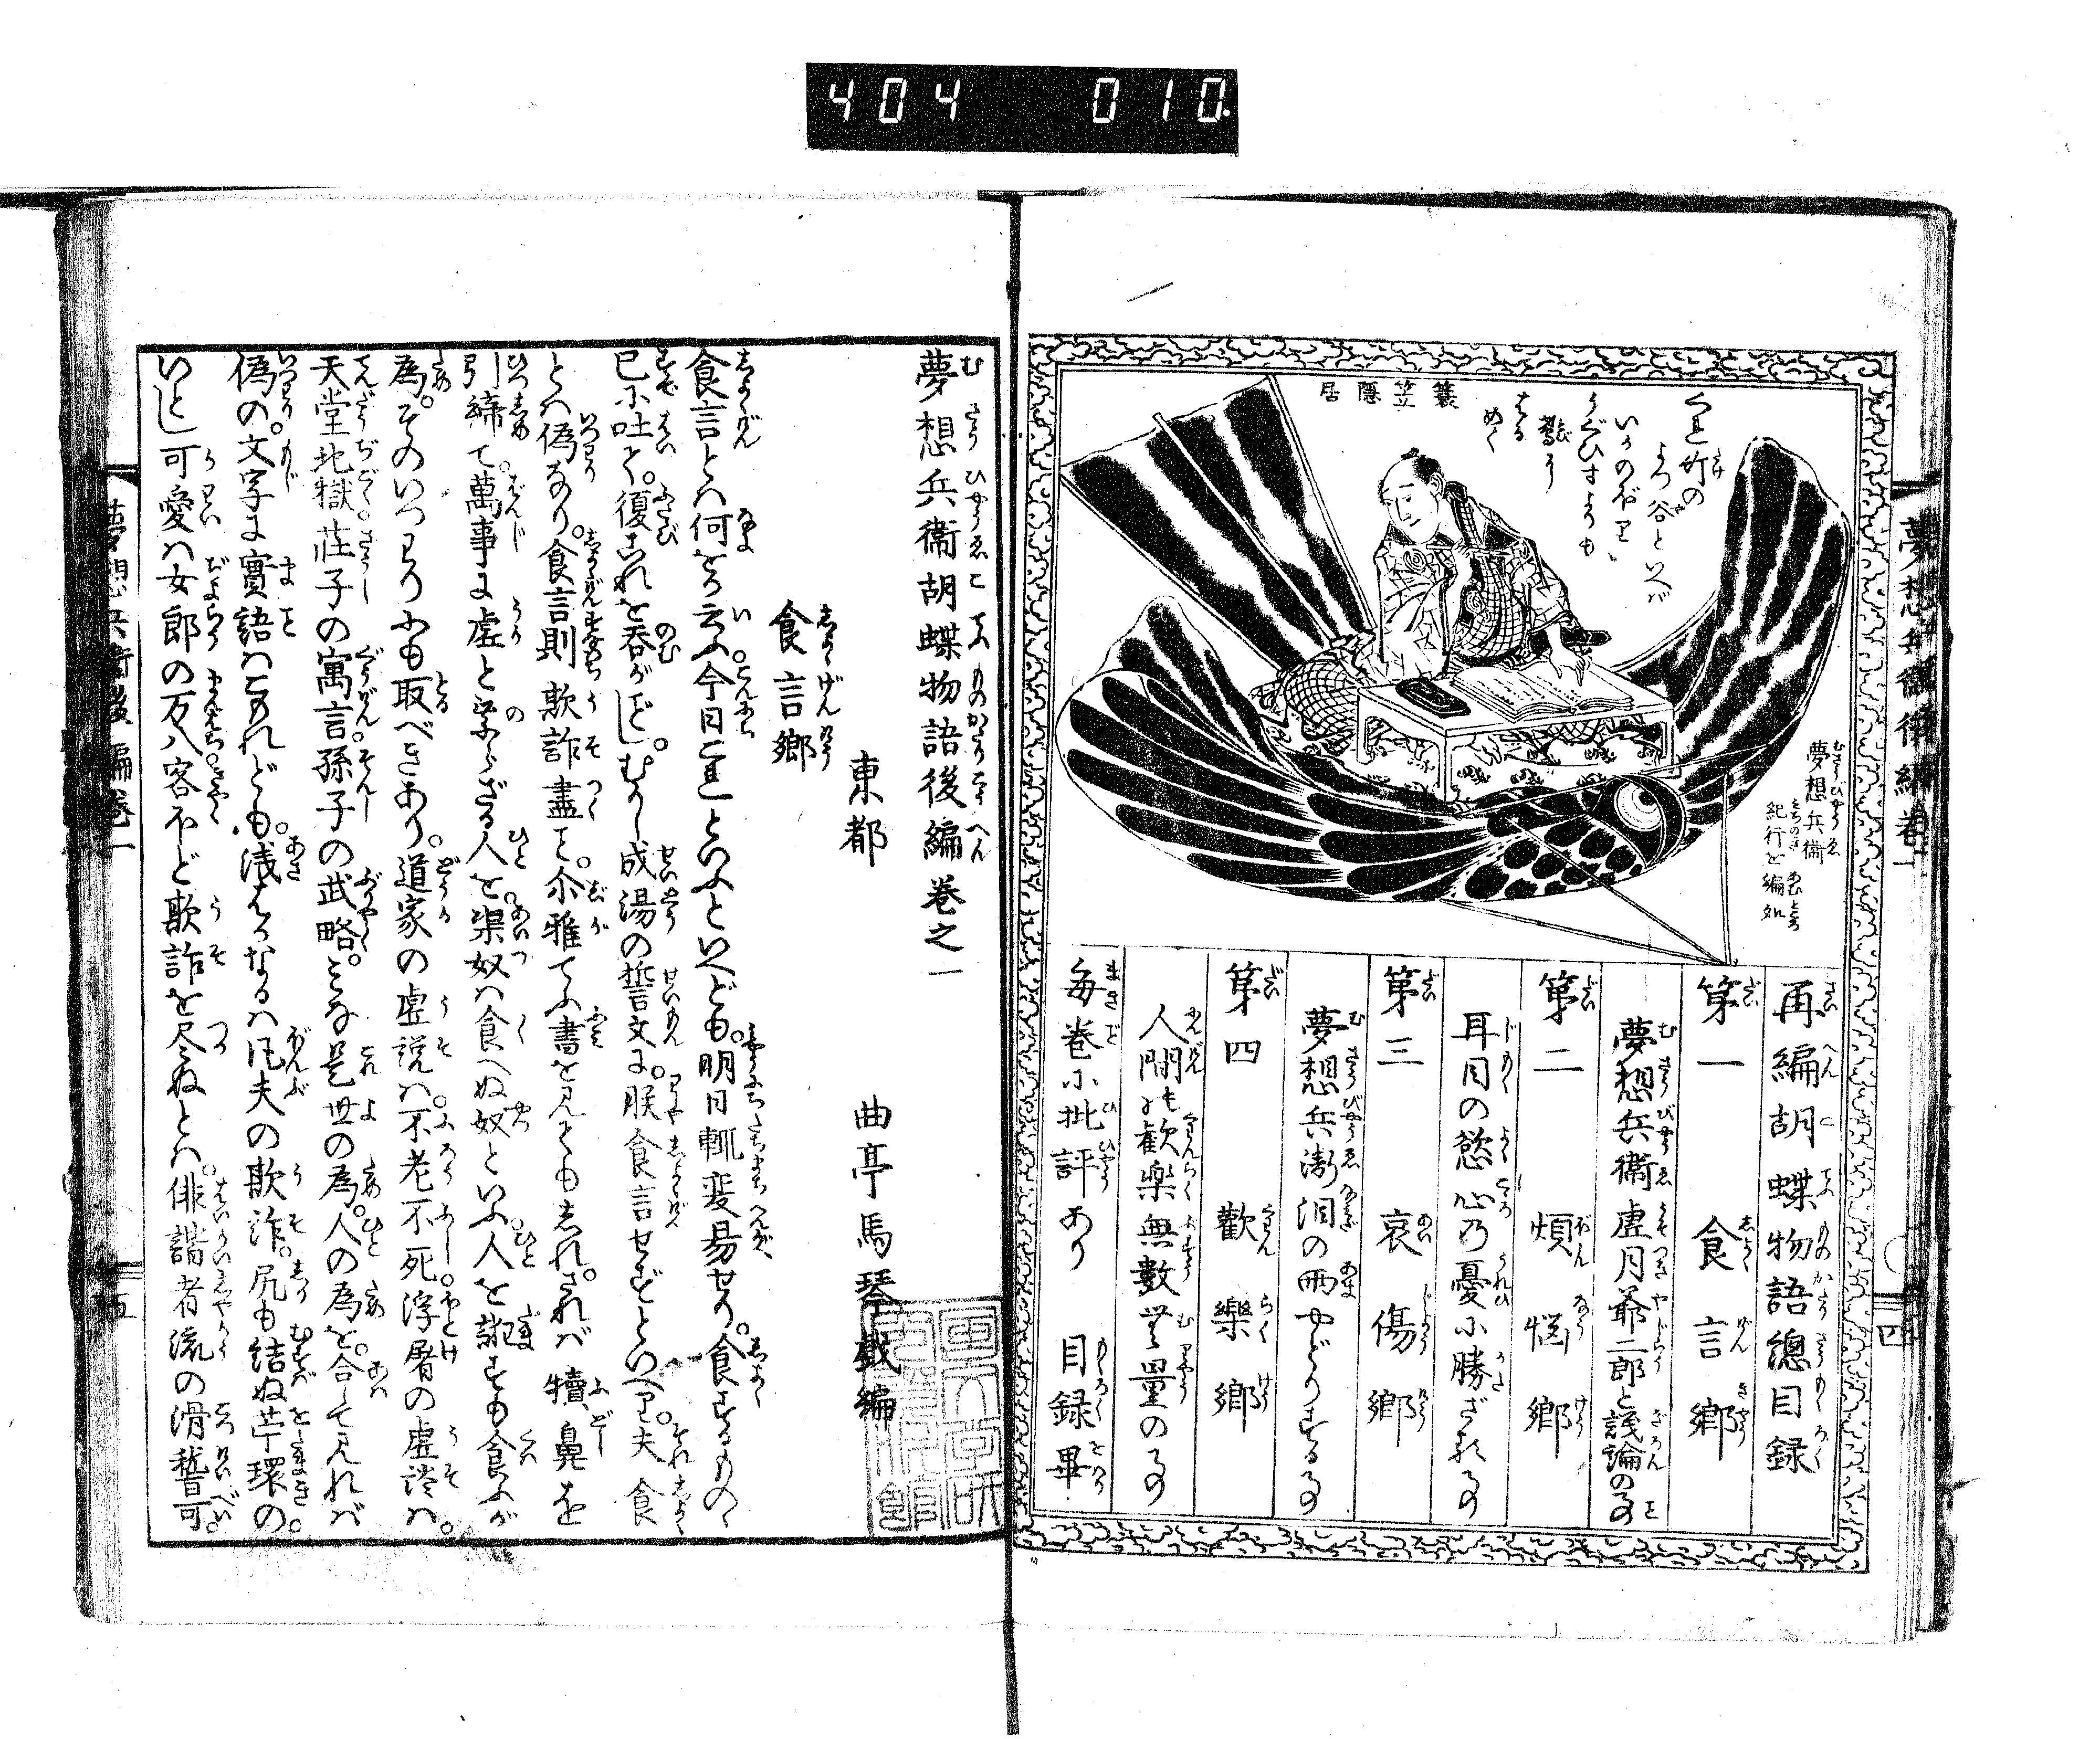 404 010
蓑笠隠居
くれ竹の
よつ谷といへば
いかのぼり
うぐひすよりも
鳶ぞ
はる
めく
夢想兵衛
紀行を編処
再編胡蝶物語總目録
第一 食言郷
夢想兵衛虚月爺二郎と議論の事
第二 煩悩郷
耳目の慾心の憂に勝ざる事
第三 哀傷郷
夢想兵衛泪の雨やどりする事
第四 歡樂郷
人間の歓楽無数無量の事
毎巻に批評あり 目録畢
夢想兵衛後編巻一
四
夢想兵衛胡蝶物語後編巻之一
東都 曲亭馬琴戯編
食言郷
食言とは何をか云ふ。今日これといふといへども。明日輙変易せり。食するものゝ
已に吐く。復これを呑がごとし。むかし成湯の誓言文に。朕食言せずといへり。夫食
とは偽なり。食言則欺詐盡と。尓雅てふ書を見ても志れ。されば犢鼻を
引締て。萬事に虚と学ざる人を。渠奴は食へぬ奴といふ。人を譀すも食ふが
為。そのいつはりにも取べきあり。道家の虚説は。不老不死浮屠の虚談は。
天堂地獄。荘子の寓言。孫子の武略。みな是世の為。人の為を。合して見れば
偽の。文字は實語はこもれども。浅はかなるは凡夫の欺詐。尻も結ぬ苧環の。
いとし可愛は女郎の万八客ほど欺詐を尽ねとは。俳諧者流の滑稽可。
夢想兵衛後編巻一
五